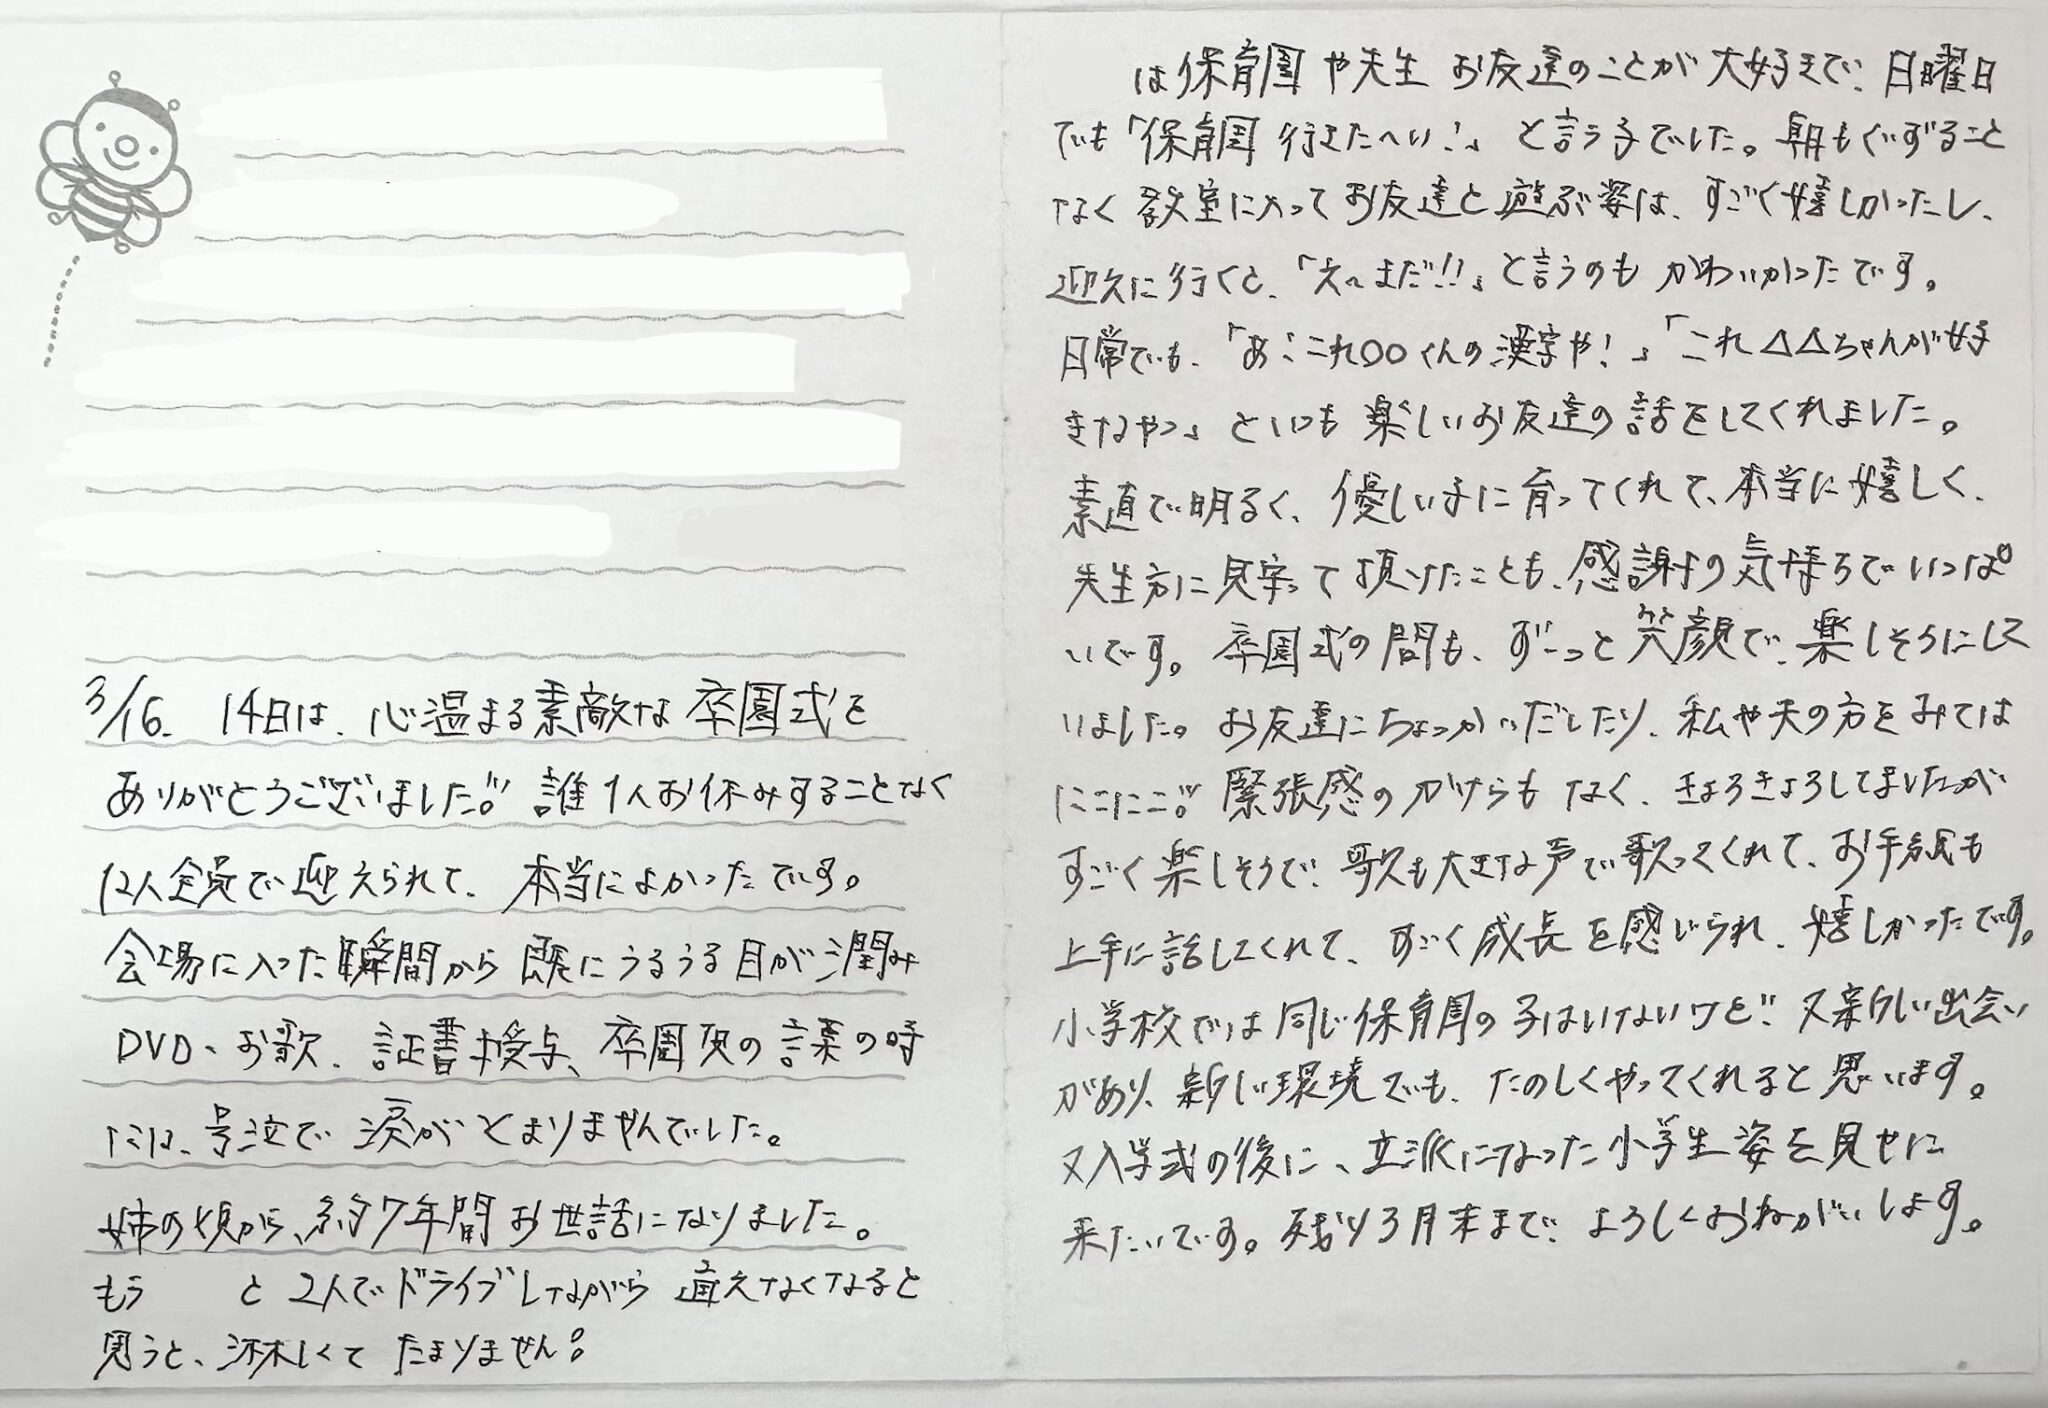 3/16. 14日は、心温まる素敵な卒園式を
ありがとうございました!! 誰1人お休みすることなく
12人全員で迎えられて、本当によかったです。
会場に入った瞬間から既にうるうる目が潤み
DVD、お歌、証書授与、卒園児の言葉の時
には、号泣で涙がとまりませんでした。
姉の頃から、約7年間お世話になりました。
もう と2人でドライブしながら通えなくなると
思うと、淋しくてたまりません!
は保育園や先生 お友達のことが大好きで、日曜日
でも「保育園 行きたーい!」と言う子でした。朝もぐずること
なく教室に入ってお友達と遊ぶ姿は、すごく嬉しかったし、
迎えに行くと、「え〜まだ!!」と言うのも かわいかったです。
日常でも、「あ!これ○○くんの漢字や!」「これ△△ちゃんが好
きなやつ」といつも楽しいお友達の話をしてくれました。
素直で明るく、優しい子に育ってくれて、本当に嬉しく、
先生方に見守って頂けたことも、感謝の気持ちでいっぱ
いです。卒園式の間も、ずーっと笑顔で、楽しそうにして
いました。お友達にちょっかいだしたり、私や夫の方をみては
にこにこ!! 緊張感のかけらもなく、きょろきょろしてましたが
すごく楽しそうで、歌も大きな声で歌ってくれて、お手紙も
上手に話してくれて、すごく成長を感じられ、嬉しかったです。
小学校では同じ保育園の子はいないけど!! 又新しい出会い
があり、新しい環境でも、たのしくやってくれると思います。
又入学式の後に、立派になった小学生姿を見せに
来たいです。残り3月末まで、よろしくおねがいします。